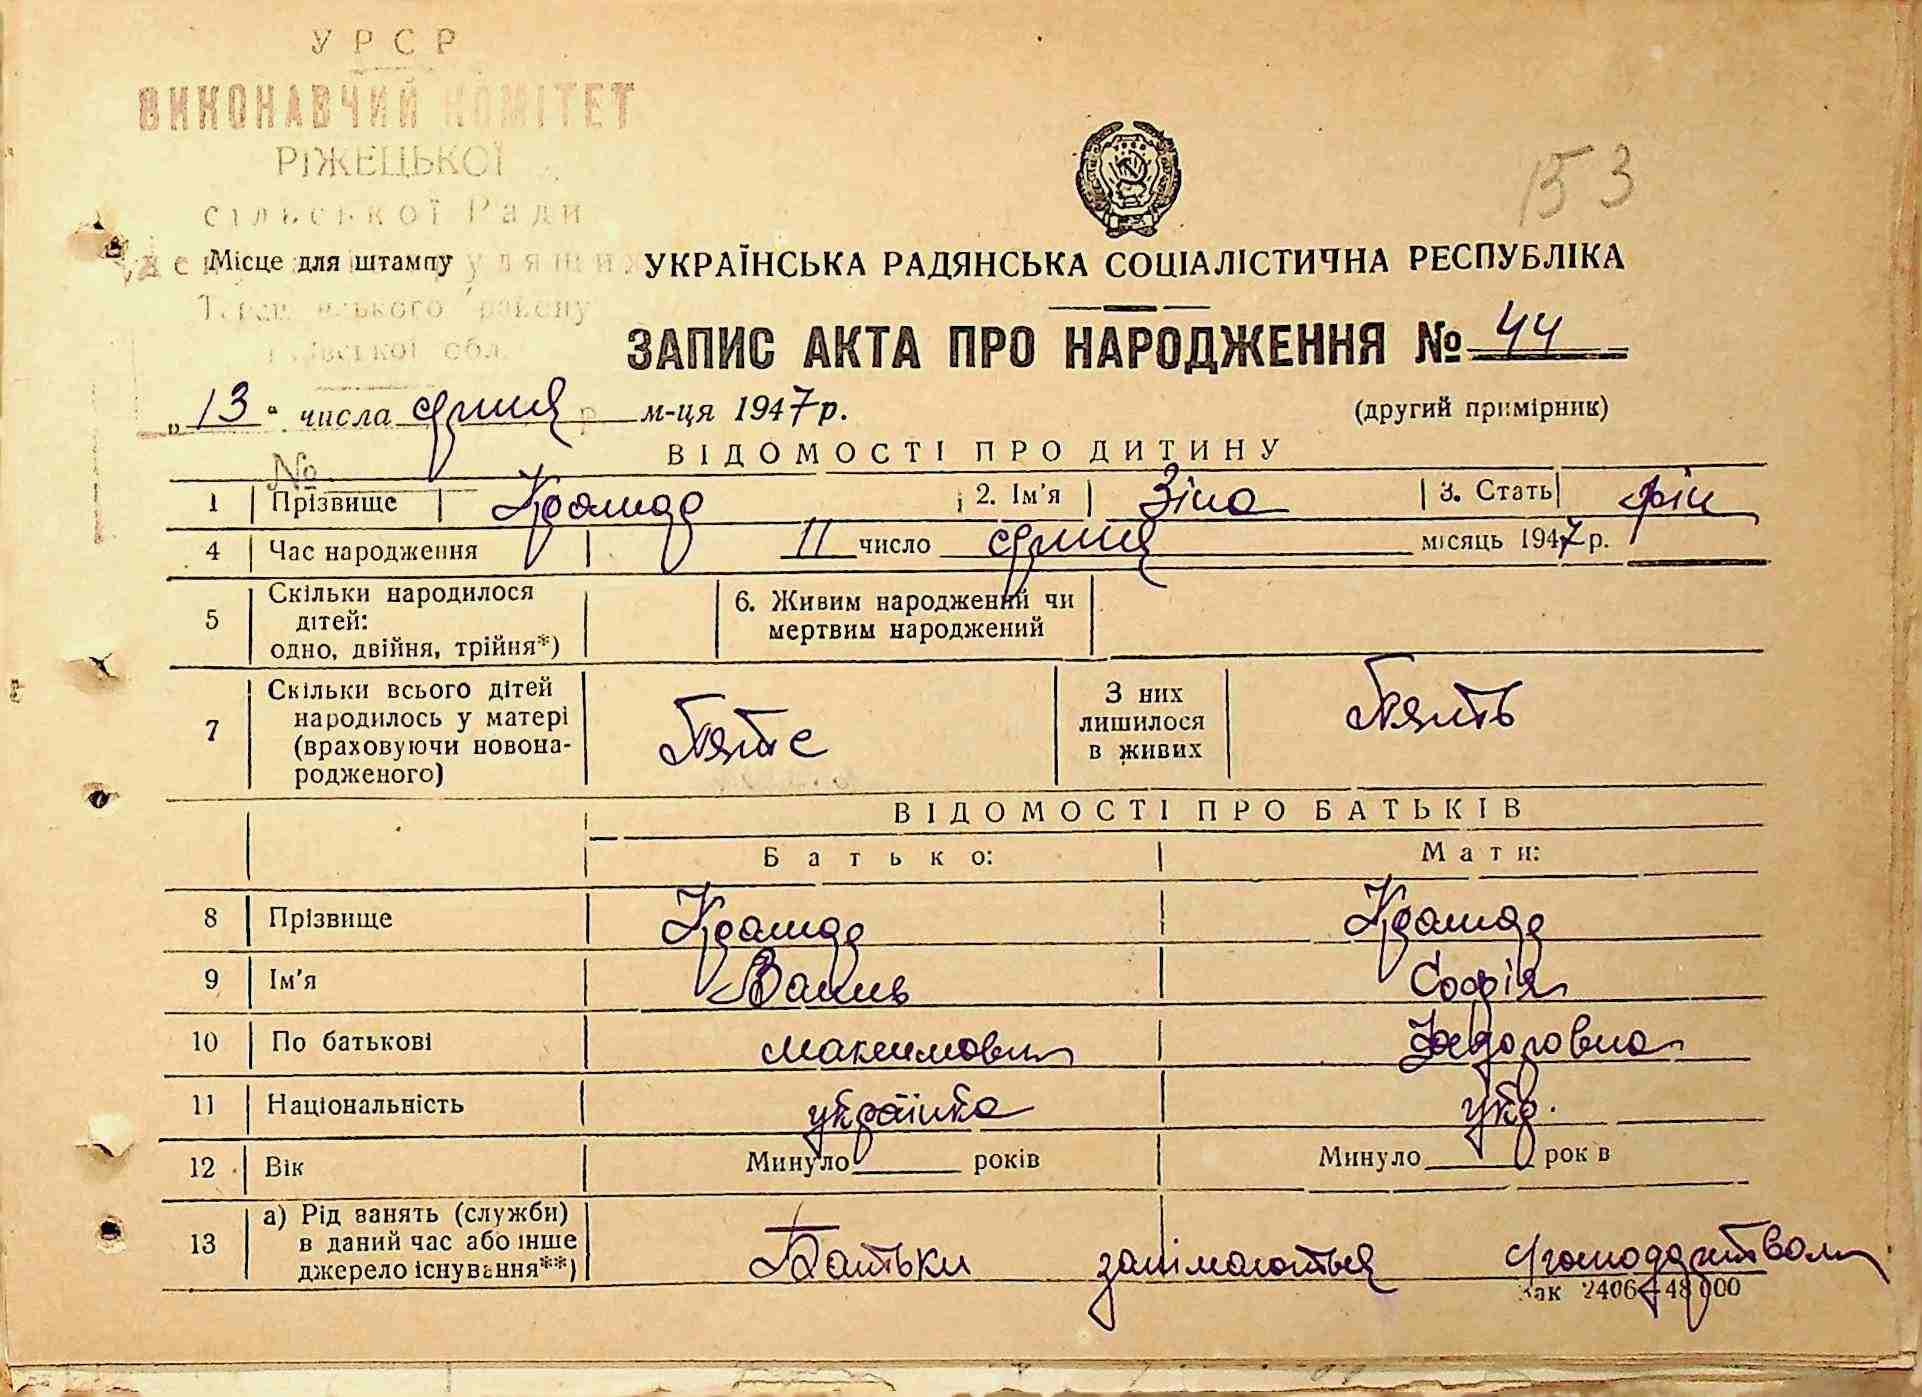 УРСР
ВИКОНАВЧИЙ КОМІТЕТ
РІЖЕЦЬКОЇ
сільської Ради
153
Місце для штампу
УКРАЇНСЬКА РАДЯНСЬКА СОЦІАЛІСТИЧНА РЕСПУБЛІКА
району
обл.
ЗАПИС АКТА ПРО НАРОДЖЕННЯ № 44
„13“ числа серпня м-ця 1947 р.
(другий примірник)
№
ВІДОМОСТІ ПРО ДИТИНУ
1 Прізвище Крамар 2. Ім'я Зіна 3. Стать жін
4 Час народження 11 число серпня місяць 1947 р.
5 Скільки народилося дітей: одно, двійня, трійня*) 6. Живим народжений чи мертвим народжений
7 Скільки всього дітей народилось у матері (враховуючи новонародженого) Пяте З них лишилося в живих Пять
ВІДОМОСТІ ПРО БАТЬКІВ
Батько: Мати:
8 Прізвище Крамар Крамар
9 Ім'я Софія
10 По батькові Максимович Федоровна
11 Національність українка укр.
12 Вік Минуло років Минуло років
13 а) Рід занять (служби) в даний час або інше джерело існування**) Батьки занімаються
Зак 2406—48000